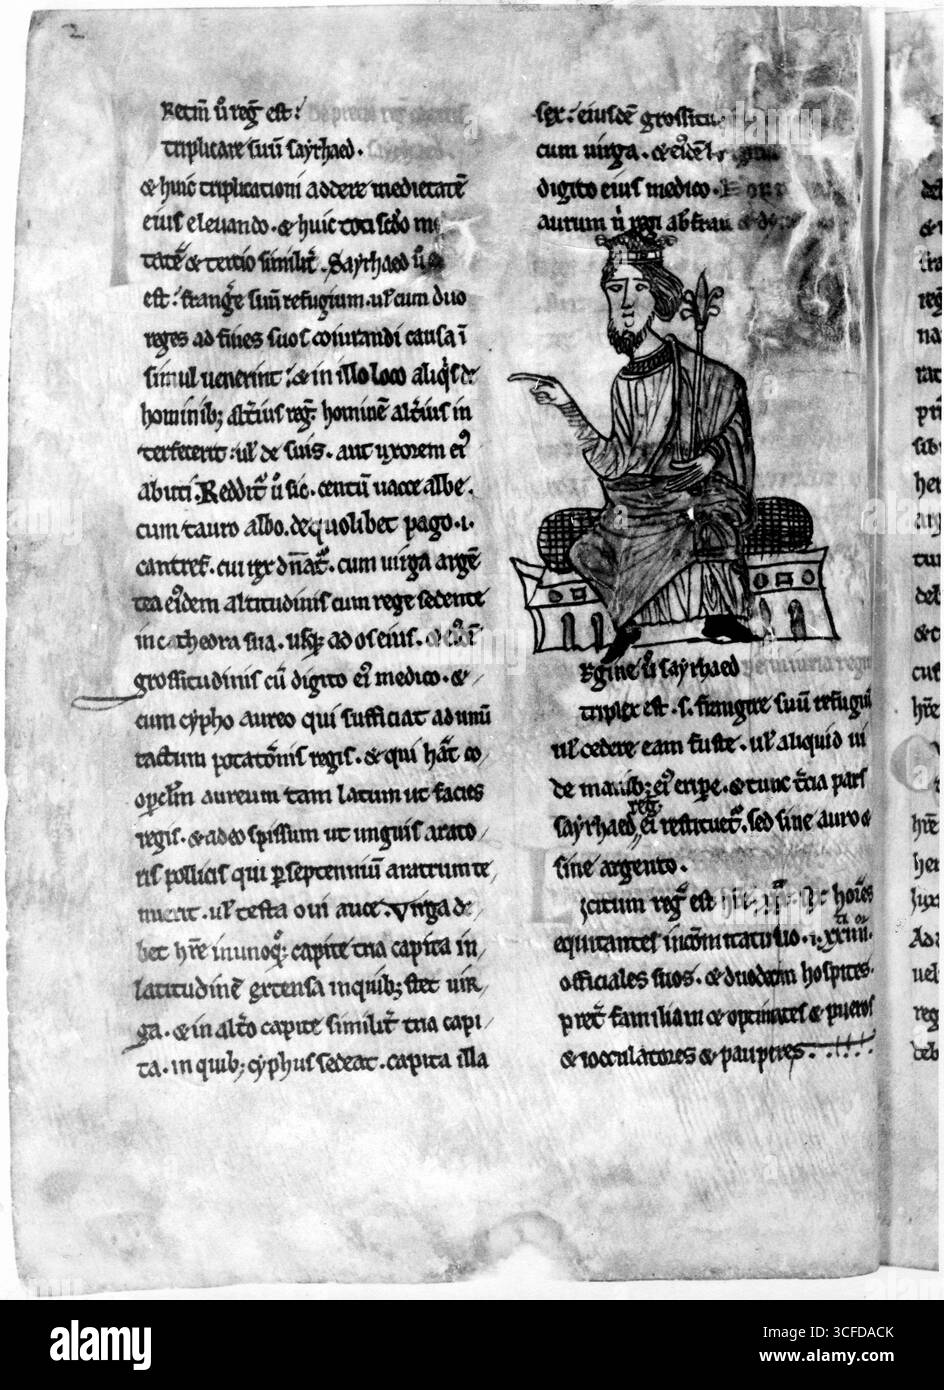 Precium u reg est:
triplicare suu sayrhaed.
& huic triplicationi addere medietate
eius elevando. & huic toti scdo me
tate & tertio similit. Sayrhaed u
est: frange suu refugium. ul cum duo
reges ad fines suos coiurandi causa i
simul uenerint: & in illo loco aliqs de
hominib; altius reg homine altius in
terfecerit: ul de suis. aut uxorem ei
abuti. Reddit u sic. centu uacce albe
cum tauro albo. de quolibet pago .i.
cantref. cui rex dnat. cum uirga argen
tea eidem altitudinis cum rege sedente
in cathedra sua. usq; ad os eius. & eide
grossitudinis cu digito ei medico. &
cum cypho aureo qui sufficiat ad unu
tactum potationis regis. & qui hat co
opclm aureum tam latum ut facies
regis. & adeo spissum ut unguis arato
ris pollicis qui p septenniu aratrum te
nuerit. ul testa oui auce. Virga de
bet hre in unoq; capite tria capita in
latitudine extensa in quib; stet uir
ga. & in alto capite similit tria capi
ta. in quib; cyphus sedeat. capita illa
sex: eiusde grossitu
cum uirga. & eide
digito eius medico.
aurum u non
Regine u sayrhaed
triplex est .s. frangere suu refugiu
ul cedere eam fuste. ul aliquid ui
de manib; ei eripe. & tunc tcia pars
sayrhaed reg ei restituet. sed sine auro &
sine argento.
Scitum reg est hoies
equitantes in comitatu suo .i. xxiiii.
officiales suos. & duodecim hospites.
pret familiam & optimates & pueros
& ioculatores & pauperes.
alamy
Image ID: 3CFDACK
www.alamy.com